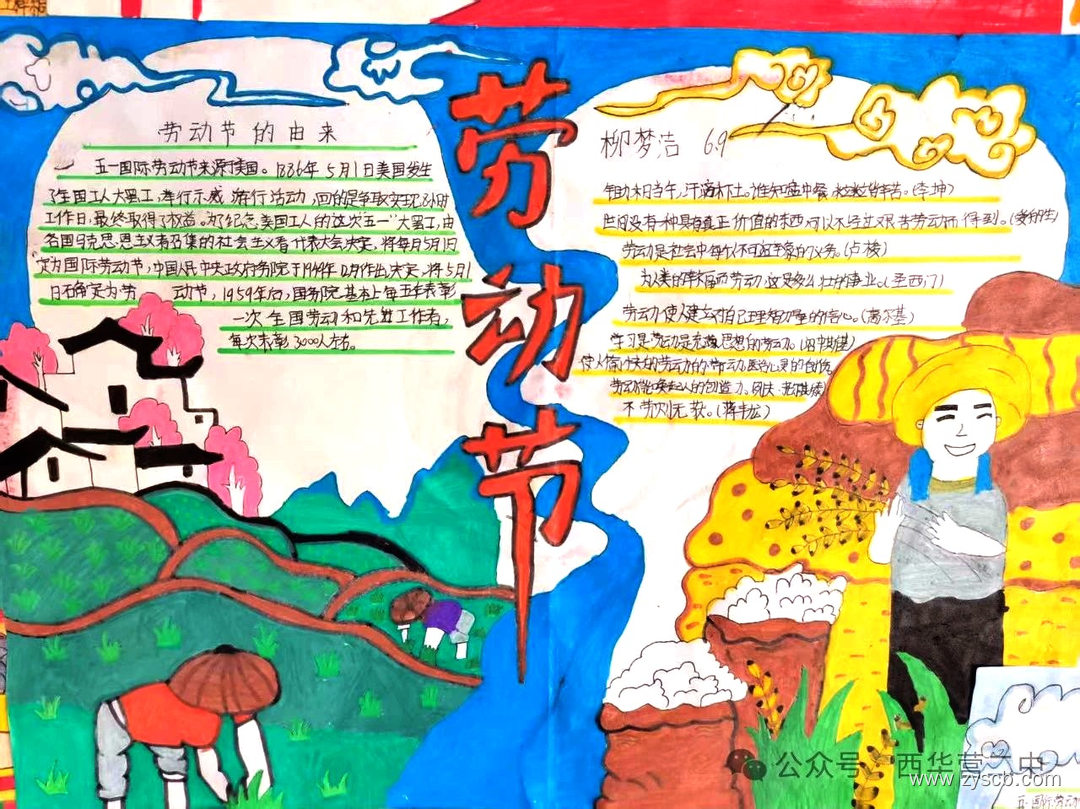 劳动节
劳动节的由来
五一国际劳动节来源于美国。1886年5月1日美国发生
了全国工人大罢工,举行示威游行活动,目的是争取实现八小时
工作日,最终取得了权益。为了纪念美国工人的这次五一"大罢工,由
各国马克思主义者召集的社会主义者代表大会决定,将每月5月1日
定为国际劳动节,中国人民中央政府务院于1949年12月作出决定,将5月1
日确定为劳 动节,1959年后,国务院基本上每五年表彰
一次全国劳动和先进工作者,
每次表彰3000人左右。
柳梦洁 6.9
锄禾日当午,汗滴禾下土。谁知盘中餐,粒粒皆辛苦。(李坤)
世间没有一种具有真正价值的东西,可以不经过艰苦劳动而得到。
劳动是社会中每个人不可避免的义务。(卢梭)
为人类的幸福而劳动,这是多么壮的事业
劳动使人建立对自己理智力量的信心。(高尔基)
学习是劳动,是充满思想的劳动。
劳动能唤起人的创造力。
不劳则无获。
公众号 西华营六中
www.zyscb.com
五一国际劳动